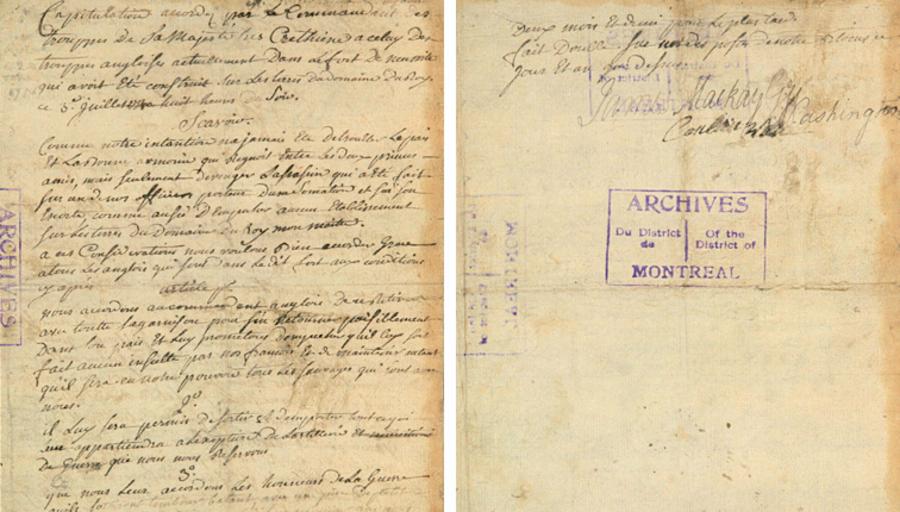 Capitulation accordée par le Commandant des
trouppes De Sa Majesté tres Crethiene a celuy Des
trouppes angloises actuellement Dans le fort de necessité
qui avoit Eté construit sur Les terres du Domaine Du Roy.
ce 3e Juillet huit heures du Soir.
Scavoir.
Comme notre intention na jamais Eté de troubler La paix
Et La Bonne armonie qui Regnoit Entre Les Deux princes
amis, mais seulement De venger L'assasin qui a Eté fait
sur un De nos officiers porteur Dune Sommation et sur son
Escorte, comme aussi D'Empecher aucun Etablissement
sur Les terres Du Domaine Du Roy mon maitre.
a ces Considerations nous voulons Bien accorder Grace
a tous Les anglois qui sont Dans Le Dit fort aux conditions
cy après
article 1er
nous accordons au commandant anglois De se Retirer
avec toutte sa garnison pour s'en Retourner paisiblement
Dans son pais Et Luy promettons D'empecher qu'il Luy soit
fait aucun insulte par nos francois Et De maintenir autant
qu'il sera en notre pouvoir tous Les Sauvages qui sont avec
nous.
2o
il Luy sera permis De sortir et D'emporter tout ce qui
Leur appartiendra a L'exception De L'artillerie Et munitions
De Guerre que nous nous Reservons
3o
que nous Leur accordons Les honneurs De La Guerre
qu'ils sortiront tambour Battant avec une piece De petit
Deux mois Et Demi pour Le plus tard.
fait Double sur un des postes De notre Blocus ce
Jour Et an que Dessus
James Mackay
GWashington
Coulon
ARCHIVES
Du District de
Of the District of
MONTREAL
ARCHIVES
MONTREAL